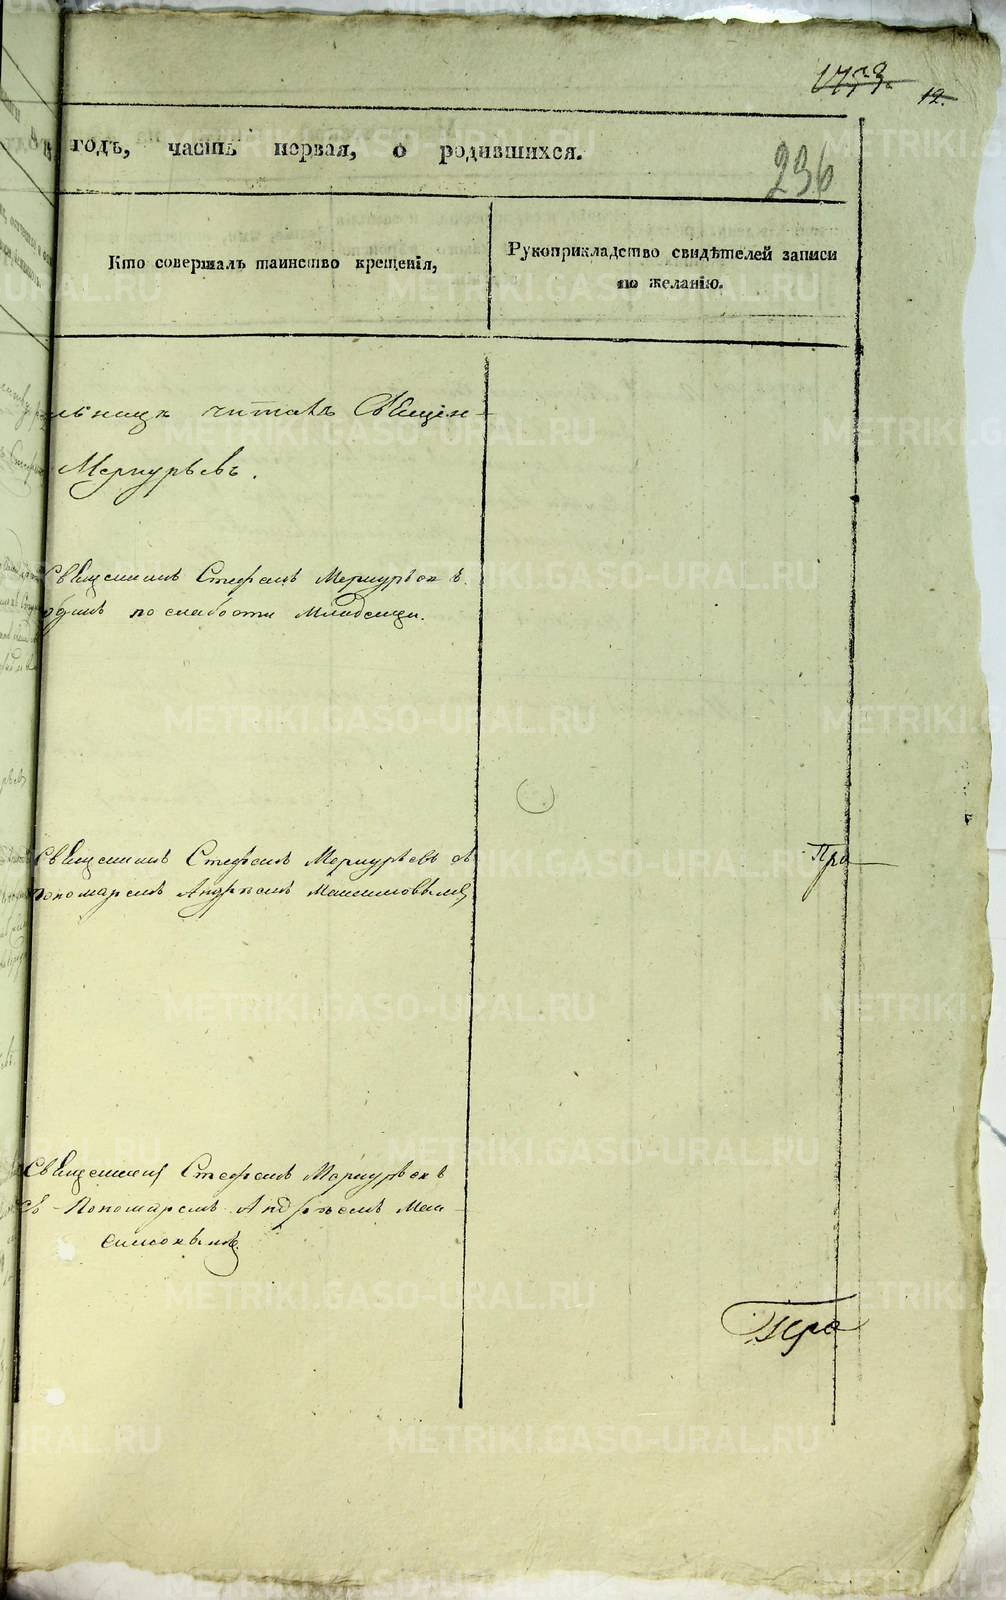 12.
236
годъ, часть первая, о родившихся.
Кто совершалъ таинство крещенія,
Рукоприкладство свидѣтелей записи
по желанію.
читалъ Священ-
Меркурьевъ.
Священникъ Стефанъ Меркурьевъ
одинъ по слабости Младенца.
Священникъ Стефанъ Меркурьевъ съ
Пономаремъ Андреемъ Максимовымъ
Священникъ Стефанъ Меркурьевъ
съ Пономаремъ Андреемъ Мак-
симовымъ
Пра
Пра
METRIKI.GASO-URAL.RU